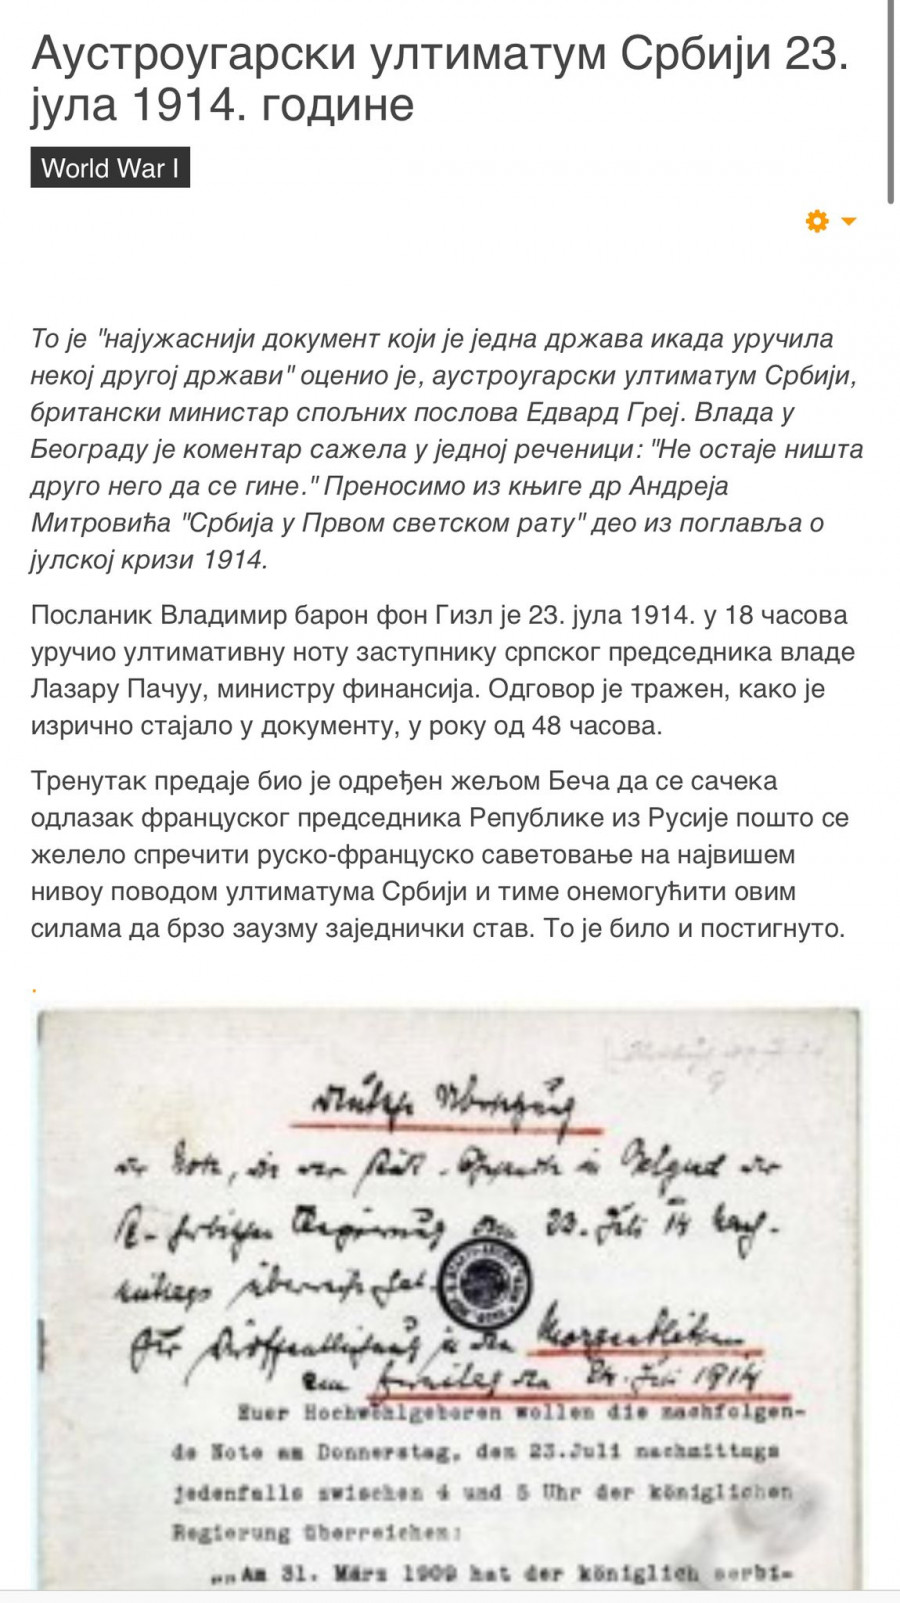 Аустроугарски ултиматум Србији 23.
јула 1914. године
World War I
То је "најужаснији документ који је једна држава икада уручила
некој другој држави" оценио је, аустроугарски ултиматум Србији,
британски министар спољних послова Едвард Греј. Влада у
Београду је коментар сажела у једној реченици: "Не остаје ништа
друго него да се гине." Преносимо из књиге др Андреја
Митровића "Србија у Првом светском рату" део из поглавља о
јулској кризи 1914.
Посланик Владимир барон фон Гизл је 23. јула 1914. у 18 часова
уручио ултимативну ноту заступнику српског председника владе
Лазару Пачуу, министру финансија. Одговор је тражен, како је
изрично стајало у документу, у року од 48 часова.
Тренутак предаје био је одређен жељом Беча да се сачека
одлазак француског председника Републике из Русије пошто се
желело спречити руско-француско саветовање на највишем
нивоу поводом ултиматума Србији и тиме онемогућити овим
силама да брзо заузму заједнички став. То је било и постигнуто.
.
der Note, die
23. Juli 14
für Veröffentlichung in den Morgenblättern
am Freitag den 24. Juli 1914
Euer Hochwohlgeboren wollen die nachfolgen-
de Note am Donnerstag, den 23.Juli nachmittags
jedenfalls zwischen 4 und 5 Uhr der königlichen
Regierung überreichen:
„„Am 31. März 1909 hat der königlich serbi-